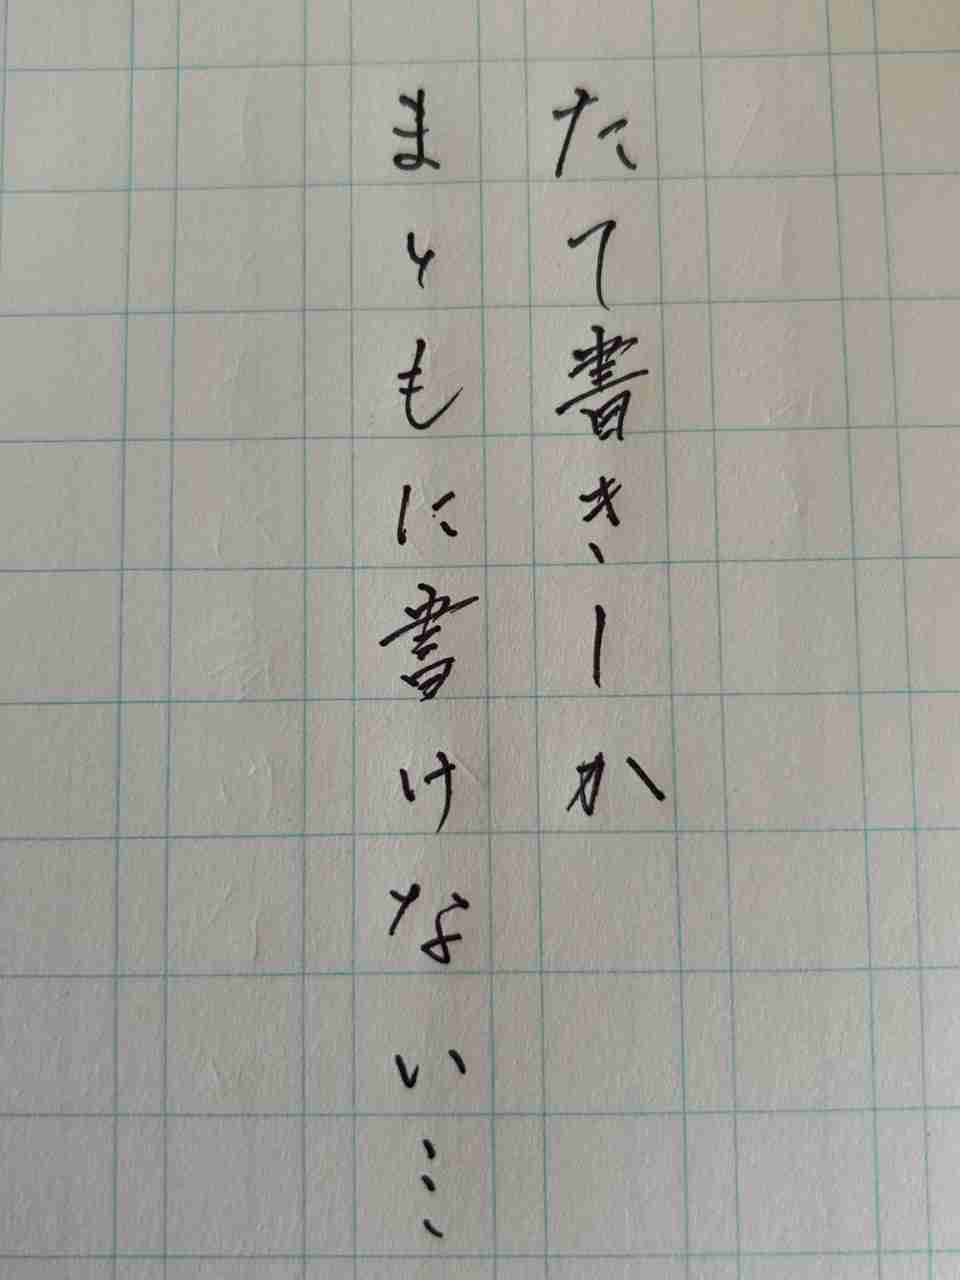 たて書きしか
まともに書けない…